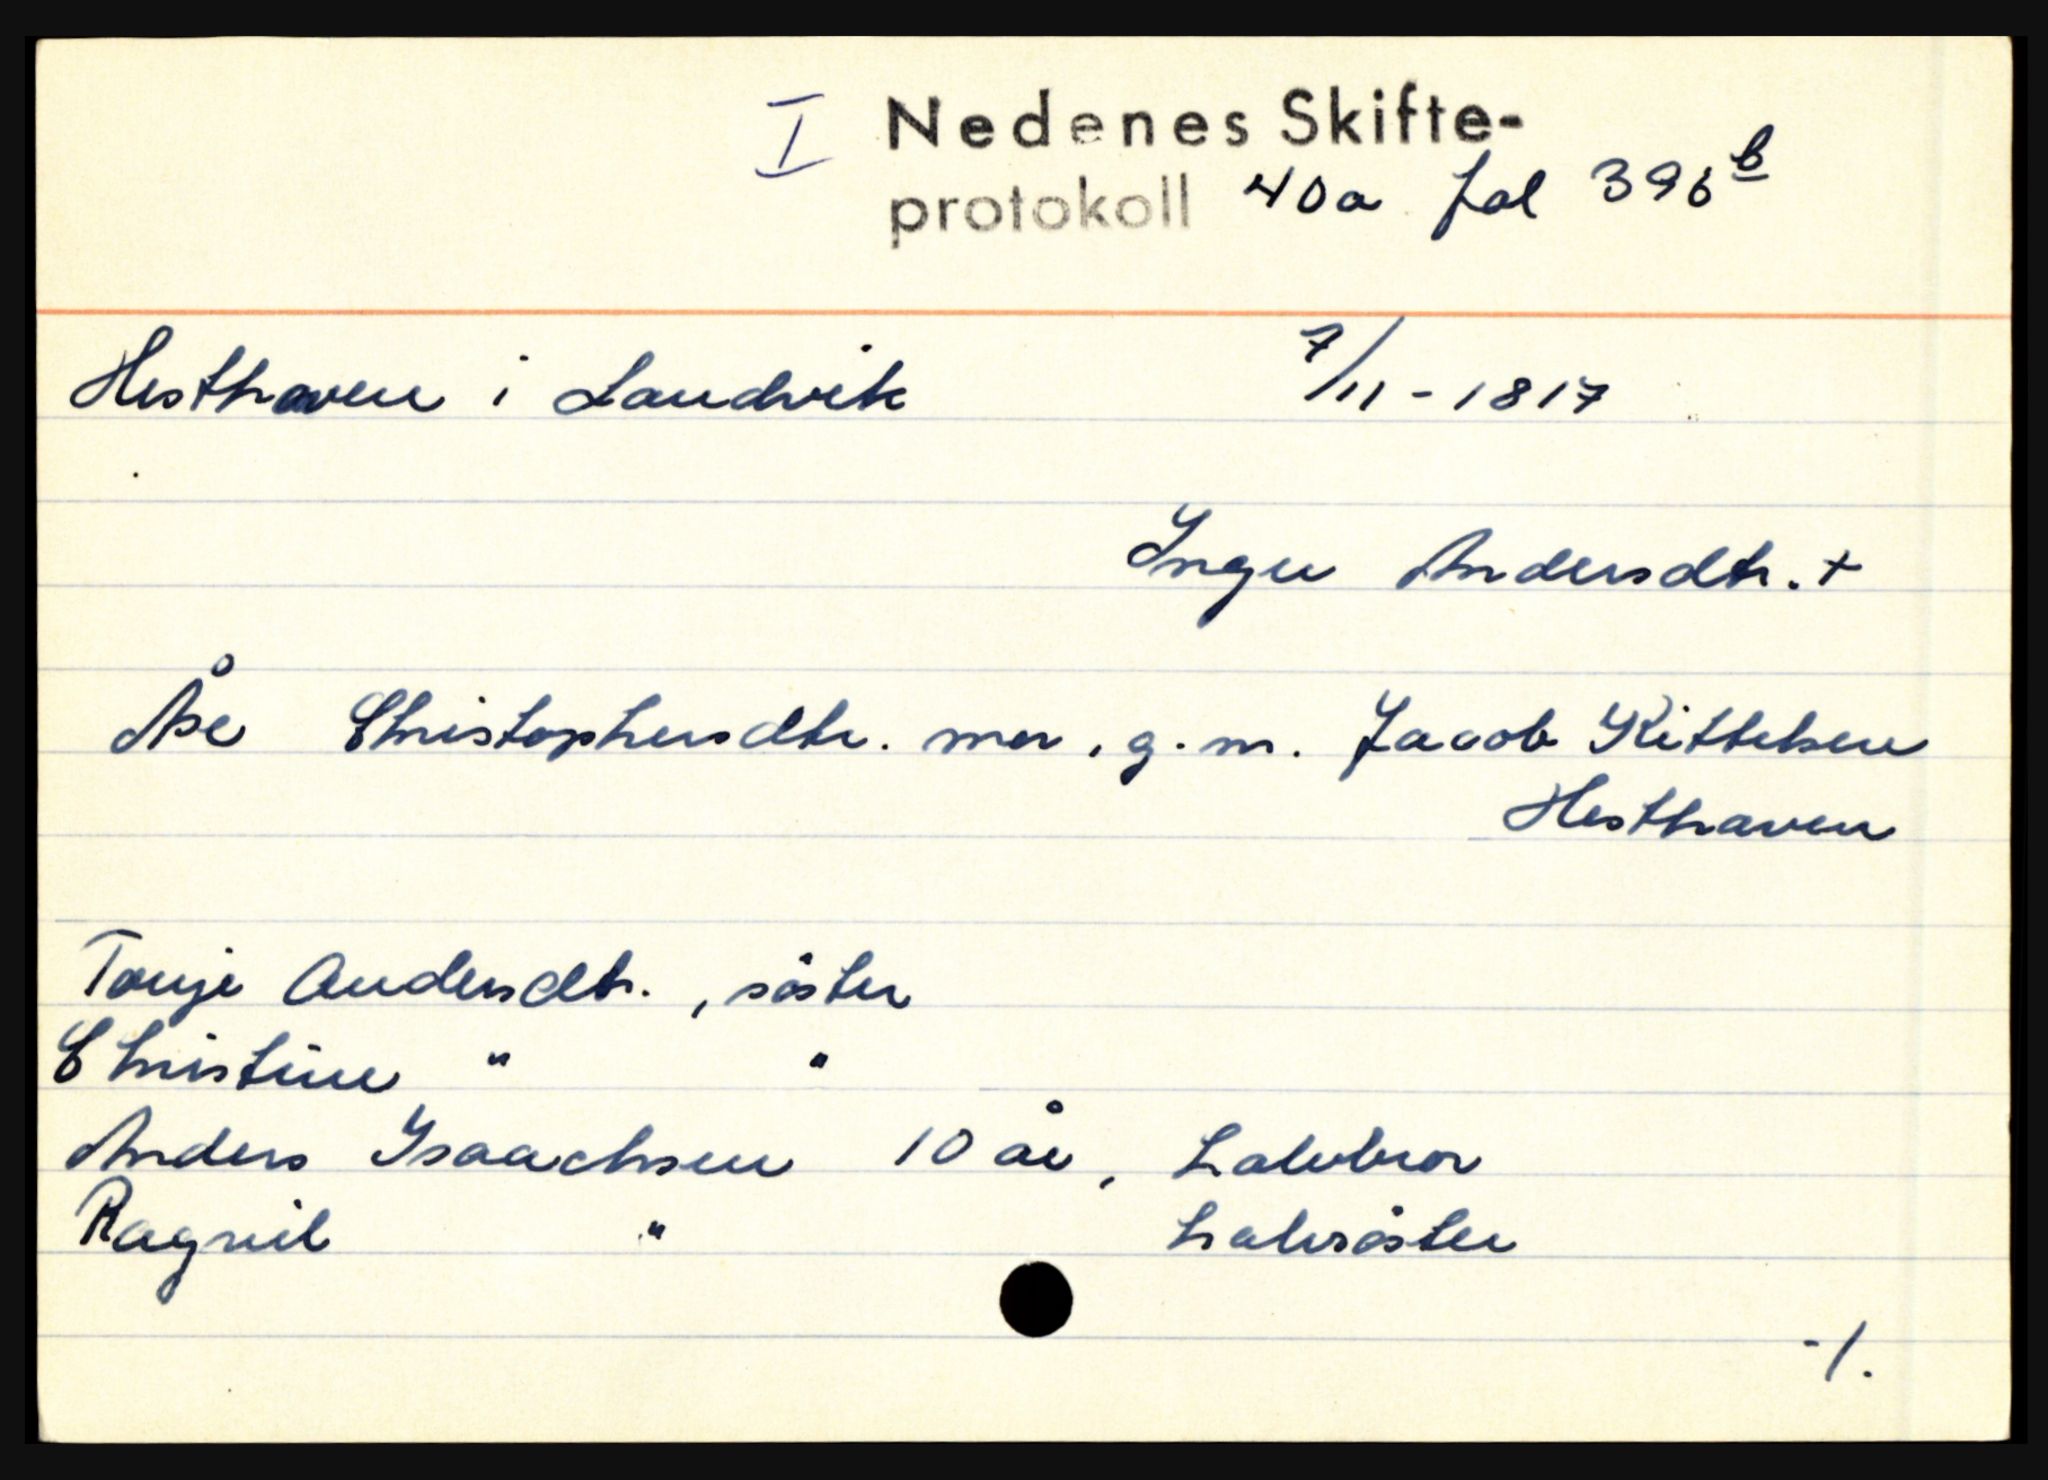 I Nedenes Skifte-
protokoll 40a fol 396 b
Hesthaven i Landvik 7/11-1817
Inger Andersdtr. +
Åse Christophersdtr. mor, g.m. Jacob Kittelsen
Hesthaven
Tonje Andersdtr., söster
Christine " "
Anders Isaachsen 10 år, halvbror
Ragnil " halvsöster
-/.